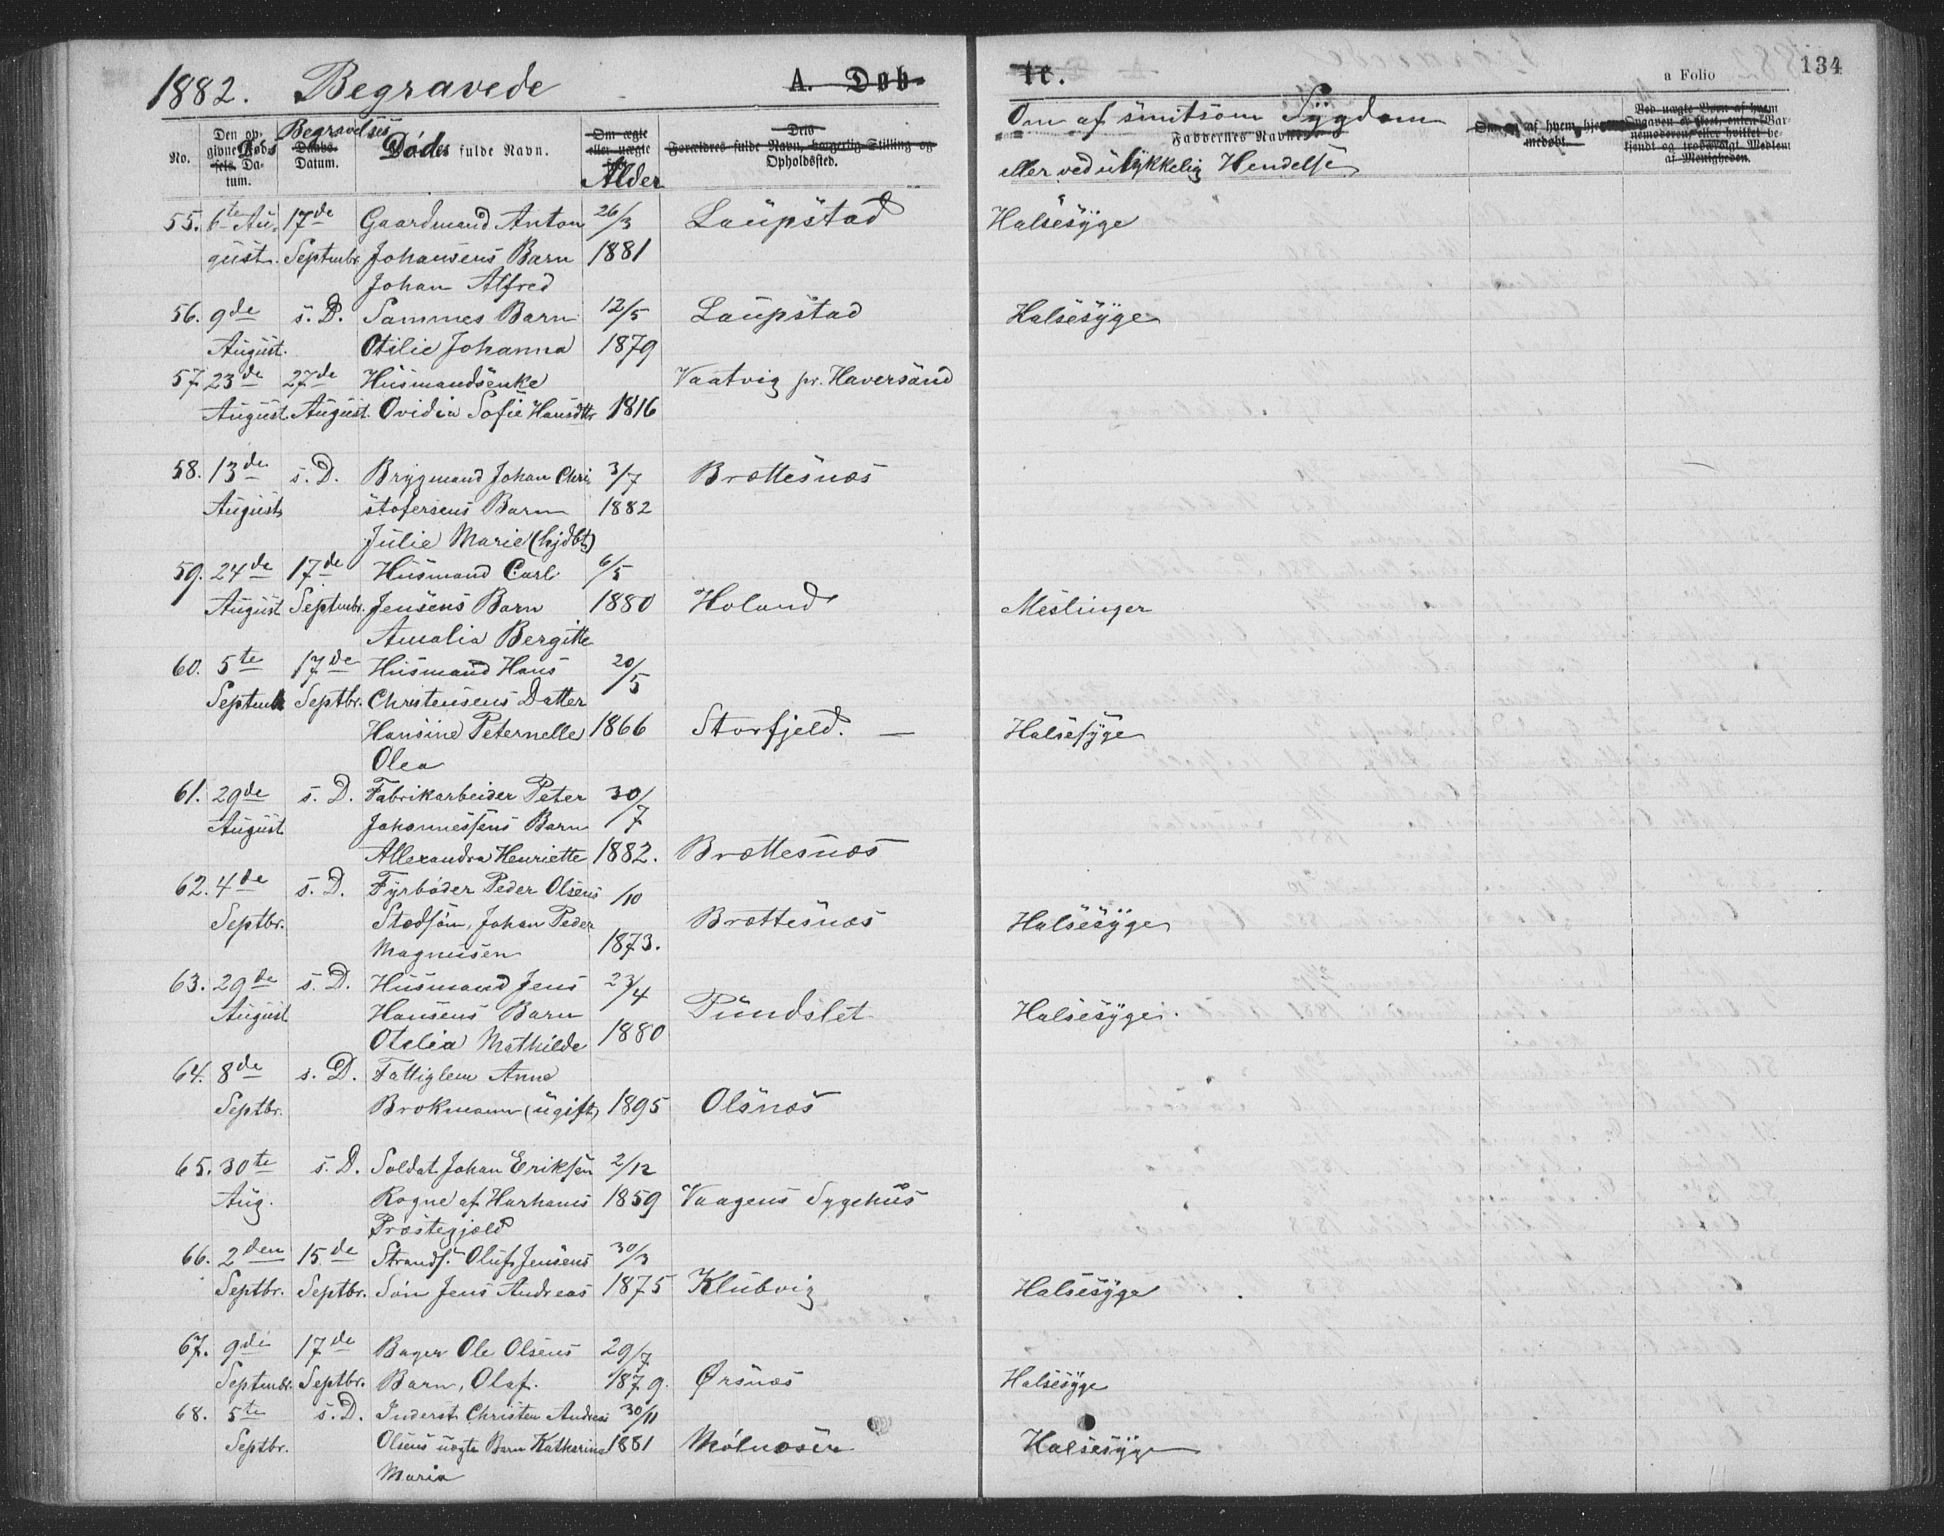 1882. Begravede A. Døb- te. a Folio 134
No. Den opgivne Døds Datum. Begravelses Datum. Dødes fulde Navn. Alder Opholdsted. Om af smitsom Sygdom
eller ved ulykkelig Hendelse
55. 6te Au- 17de Gaardmand Anton 26/3 Laupstad Halsesyge
gust. Septmbr. Johansens Barn 1881
Johan Alfred
56. 9de s. D. Sammes Barn 12/5 Laupstad Halsesyge
August. Otilie Johanna 1879
57. 23de 27de Husmandsenke Vaatvig pr. Haversand
August August. Ovidia Sofie Hansdtr 1816
58. 13de s. D. Brygmand Johan Chri 3/7 Brættesnæs
August stofersens Barn 1882
Julie Marie (hjdbt)
59. 24de 17de Husmand Carl 6/5
August Septmbr. Jensens Barn 1880 Holand Meslinger
Amalia Bergitte
60. 5te 17de Husmand Hans 20/5
Septmbr Septbr. Christensens Datter
Hansine Peternelle 1866 Storfjeld. — Halsesyge
Olea
61. 29de s. D. Fabrikarbeider Peter 30/7
August Johannessens Barn
Allexandra Henriette 1882. Brættesnæs
62. 4de s. D. Fyrbøder Peder Olsens /10
Septbr. Stedsøn, Johan Peder Brættesnæs Halsesyge
Magnusen 1873.
63. 29de s. D. Husmand Jens 23/4
August Hansens Barn Pundslet Halsesyge.
Otelia Mathilde 1880
64. 8de s. D. Fattiglem Anne
Septbr. Brokmann (ugift) 1895 Olsnæs
65. 30te s. D. Soldat Johan Eriksen 2/12
Aug. Rogne af Harhams 1859 Vaagens Sygehus
Præstegjæld
66. 2den 15de Strands. Oluf Jensens 30/3
Septbr. Septbr. Søn Jens Andreas 1875 Klubvig Halsesyge
67. 9de 17de Bager Ole Olsens 29/7
Septmbr. Septbr. Barn, Olaf. 1879. Ørsnæs Halsesyge
68. 5te s. D. Inderst Christen Andreas 30/11
Septbr. Olsens uægte Barn Katharina 1881 Mølnosen Halsesyge
Maria